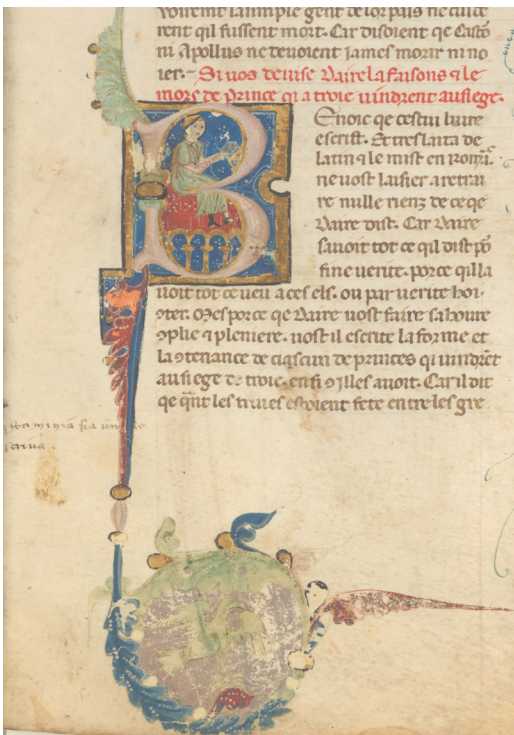 voient la simple gent de lor païs ne cuide
rent qil fussent mort. Car disoient que Casto
ni Apollus ne devoient james morir ni no
ier. Si vos devise Daire la faisons ⁊ le
mors de prince qi a troie vindrent au siege.
Enoic qe cestui livre
escrist. Et treslaita de
latin ⁊ le mist en Romã
ne vost laisier a retrai
re nulle rienz de ce qe
Daire dist. Car Daire
savoit tot ce qil dist põ
fine verite. por ce qil la
voit tot ce veu a ces els. ou par verite
Mes por ce qe Daire vost faire sa hovre
ꝯplie ⁊ pleniere. vost il escrite la forme et
la ꝯtenance de ciascun de princes qi vindrẽt
au siege de troie. en fi ꝯ illes avoit. Car il dit
qe qãnt les trives estoient fete entre les gre